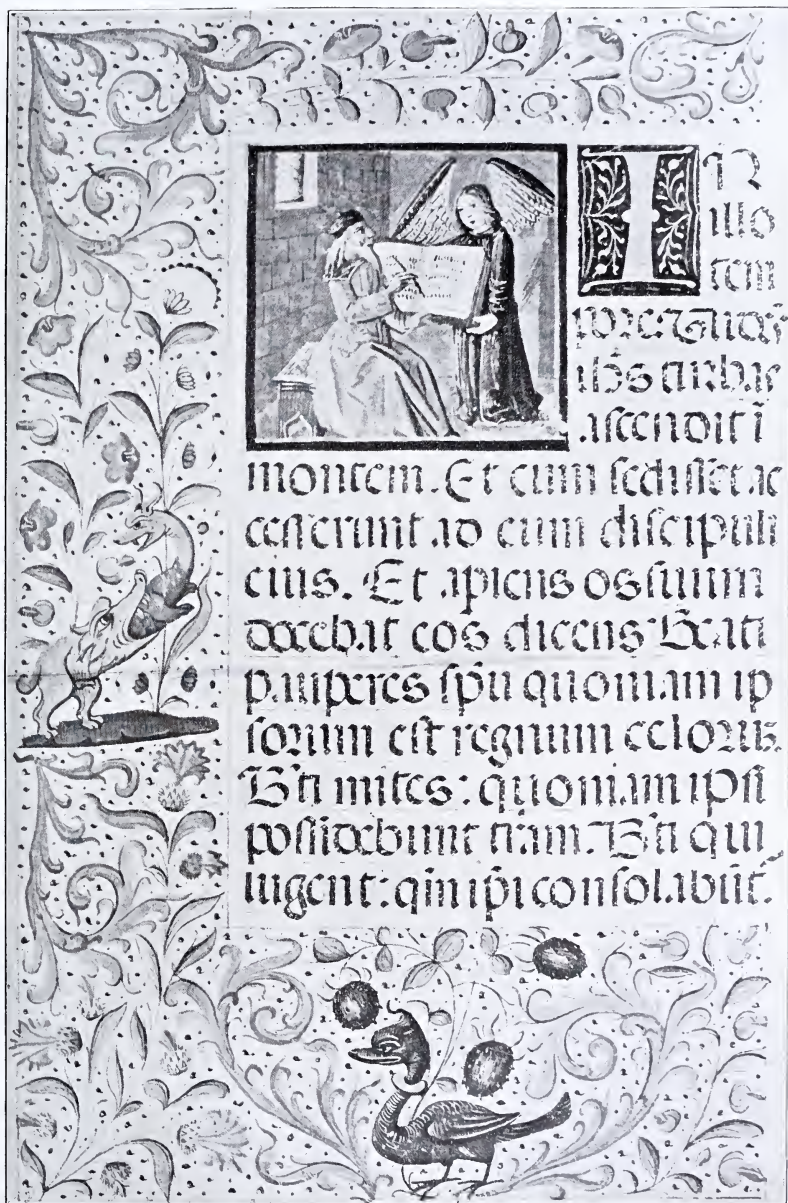 IN
illo
tem
pore: Vidēs
ihs turbas
ascendit ī
montem. Et cum sedisset ac
cesserunt ad eum discipuli
eius. Et apiens os suum
docebat eos dicens: Beati
pauperes spū quoniam ip
sorum est regnum celorūz.
Bti mites: quoniam ipsi
possidebunt trām. Bti qui
lugent: qm ipi consolabūt.